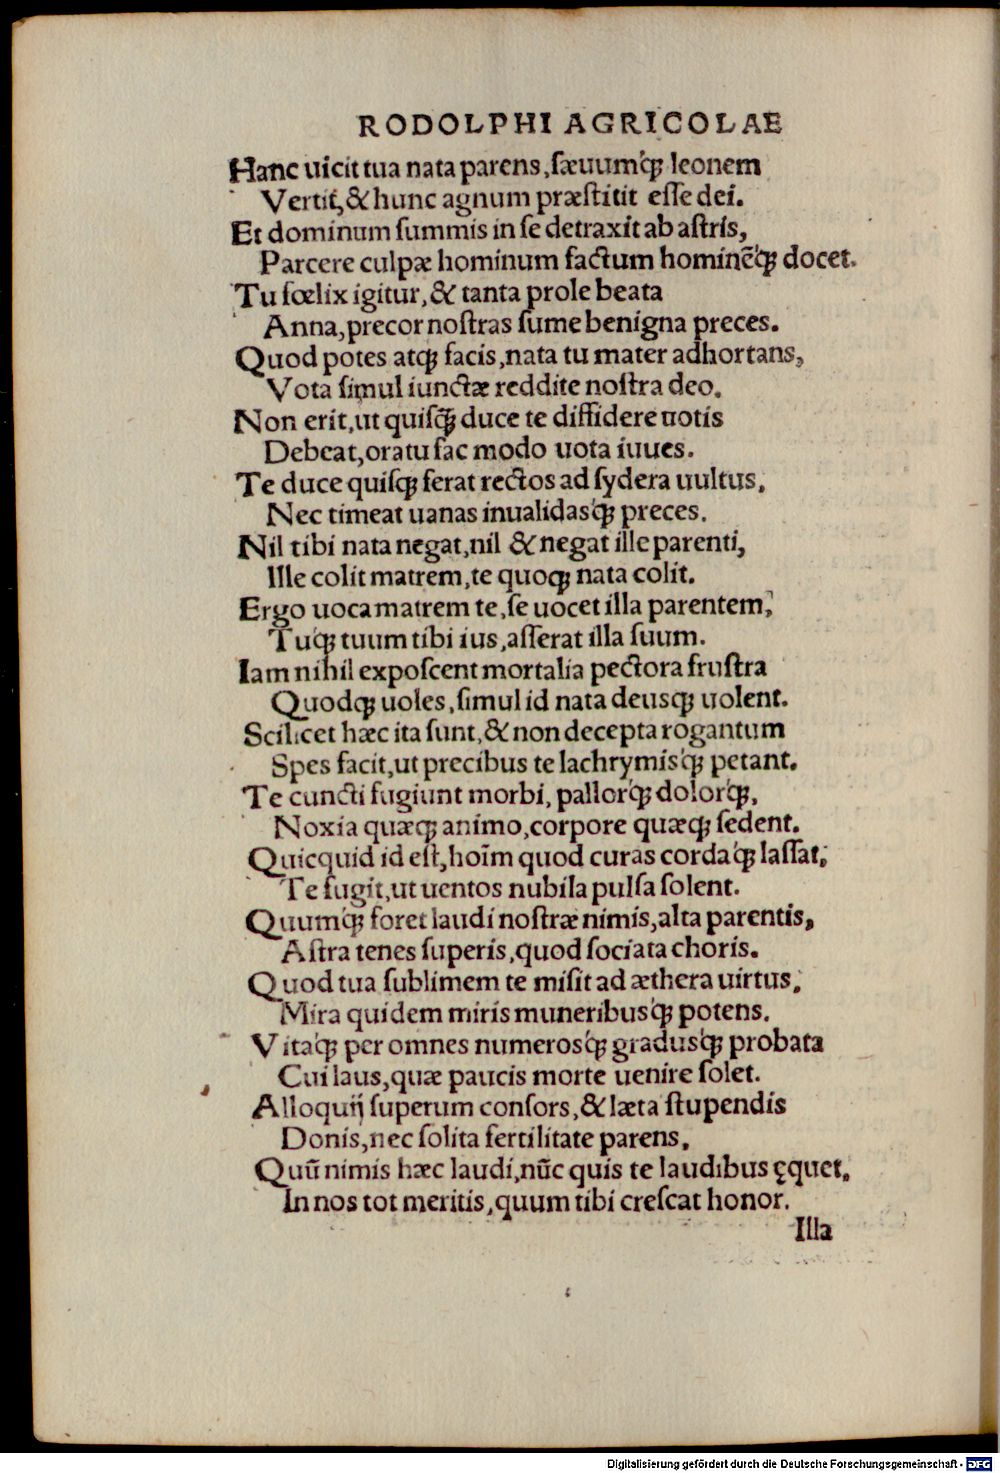 RODOLPHI AGRICOLAE
Hanc uicit tua nata parens, sæuumqꝫ leonem
Vertit, & hunc agnum præstitit esse dei.
Et dominum summis in se detraxit ab astris,
Parcere culpæ hominum factum hominẽqꝫ docet.
Tu fœlix igitur, & tanta prole beata
Anna, precor nostras sume benigna preces.
Quod potes atqꝫ facis, nata tu mater adhortans,
Vota simul iunctæ reddite nostra deo.
Non erit, ut quisq̃ duce te diffidere uotis
Debeat, oratu fac modo uota iuues.
Te duce quisqꝫ ferat rectos ad sydera uultus,
Nec timeat uanas inualidasqꝫ preces.
Nil tibi nata negat, nil & negat ille parenti,
Ille colit matrem, te quoqꝫ nata colit.
Ergo uoca matrem te, se uocet illa parentem,
Tuqꝫ tuum tibi ius, asserat illa suum.
Iam nihil exposcent mortalia pectora frustra
Quodqꝫ uoles, simul id nata deusqꝫ uolent.
Scilicet hæc ita sunt, & non decepta rogantum
Spes facit, ut precibus te lachrymisqꝫ petant.
Te cuncti fugiunt morbi, pallorqꝫ dolorqꝫ,
Noxia quæqꝫ animo, corpore quæqꝫ sedent.
Quicquid id est, hoĩm quod curas cordaqꝫ lassat,
Te fugit, ut uentos nubila pulsa solent.
Quumqꝫ foret laudi nostræ nimis, alta parentis,
Astra tenes superis, quod sociata choris.
Quod tua sublimem te misit ad æthera uirtus,
Mira quidem miris muneribusqꝫ potens.
Vitaqꝫ per omnes numerosqꝫ gradusqꝫ probata
Cui laus, quæ paucis morte uenire solet.
Alloquij superum consors, & læta stupendis
Donis, nec solita fertilitate parens.
Quũ nimis hæc laudi, nũc quis te laudibus ęquet,
In nos tot meritis, quum tibi crescat honor.
Illa
Digitalisierung gefördert durch die Deutsche Forschungsgemeinschaft - DFG